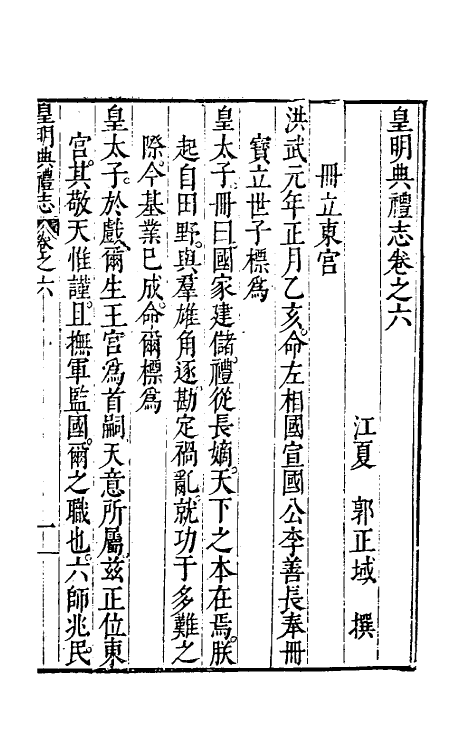 皇明典禮志卷之六
江夏 郭正域 撰
冊立東宮
洪武元年正月乙亥。命左相國宣國公李善長奉冊
寶立世子標爲
皇太子。冊曰。國家建儲。禮從長嫡。天下之本在焉。朕
起自田野。與羣雄角逐。勘定禍亂。就功于多難之
際。今基業已成。命爾標爲
皇太子。於戲。爾生王宮。爲首嗣。天意所屬。茲正位東
宮。其敬天惟謹。且撫軍監國。爾之職也。六師兆民。
皇明典禮志 卷之六 一